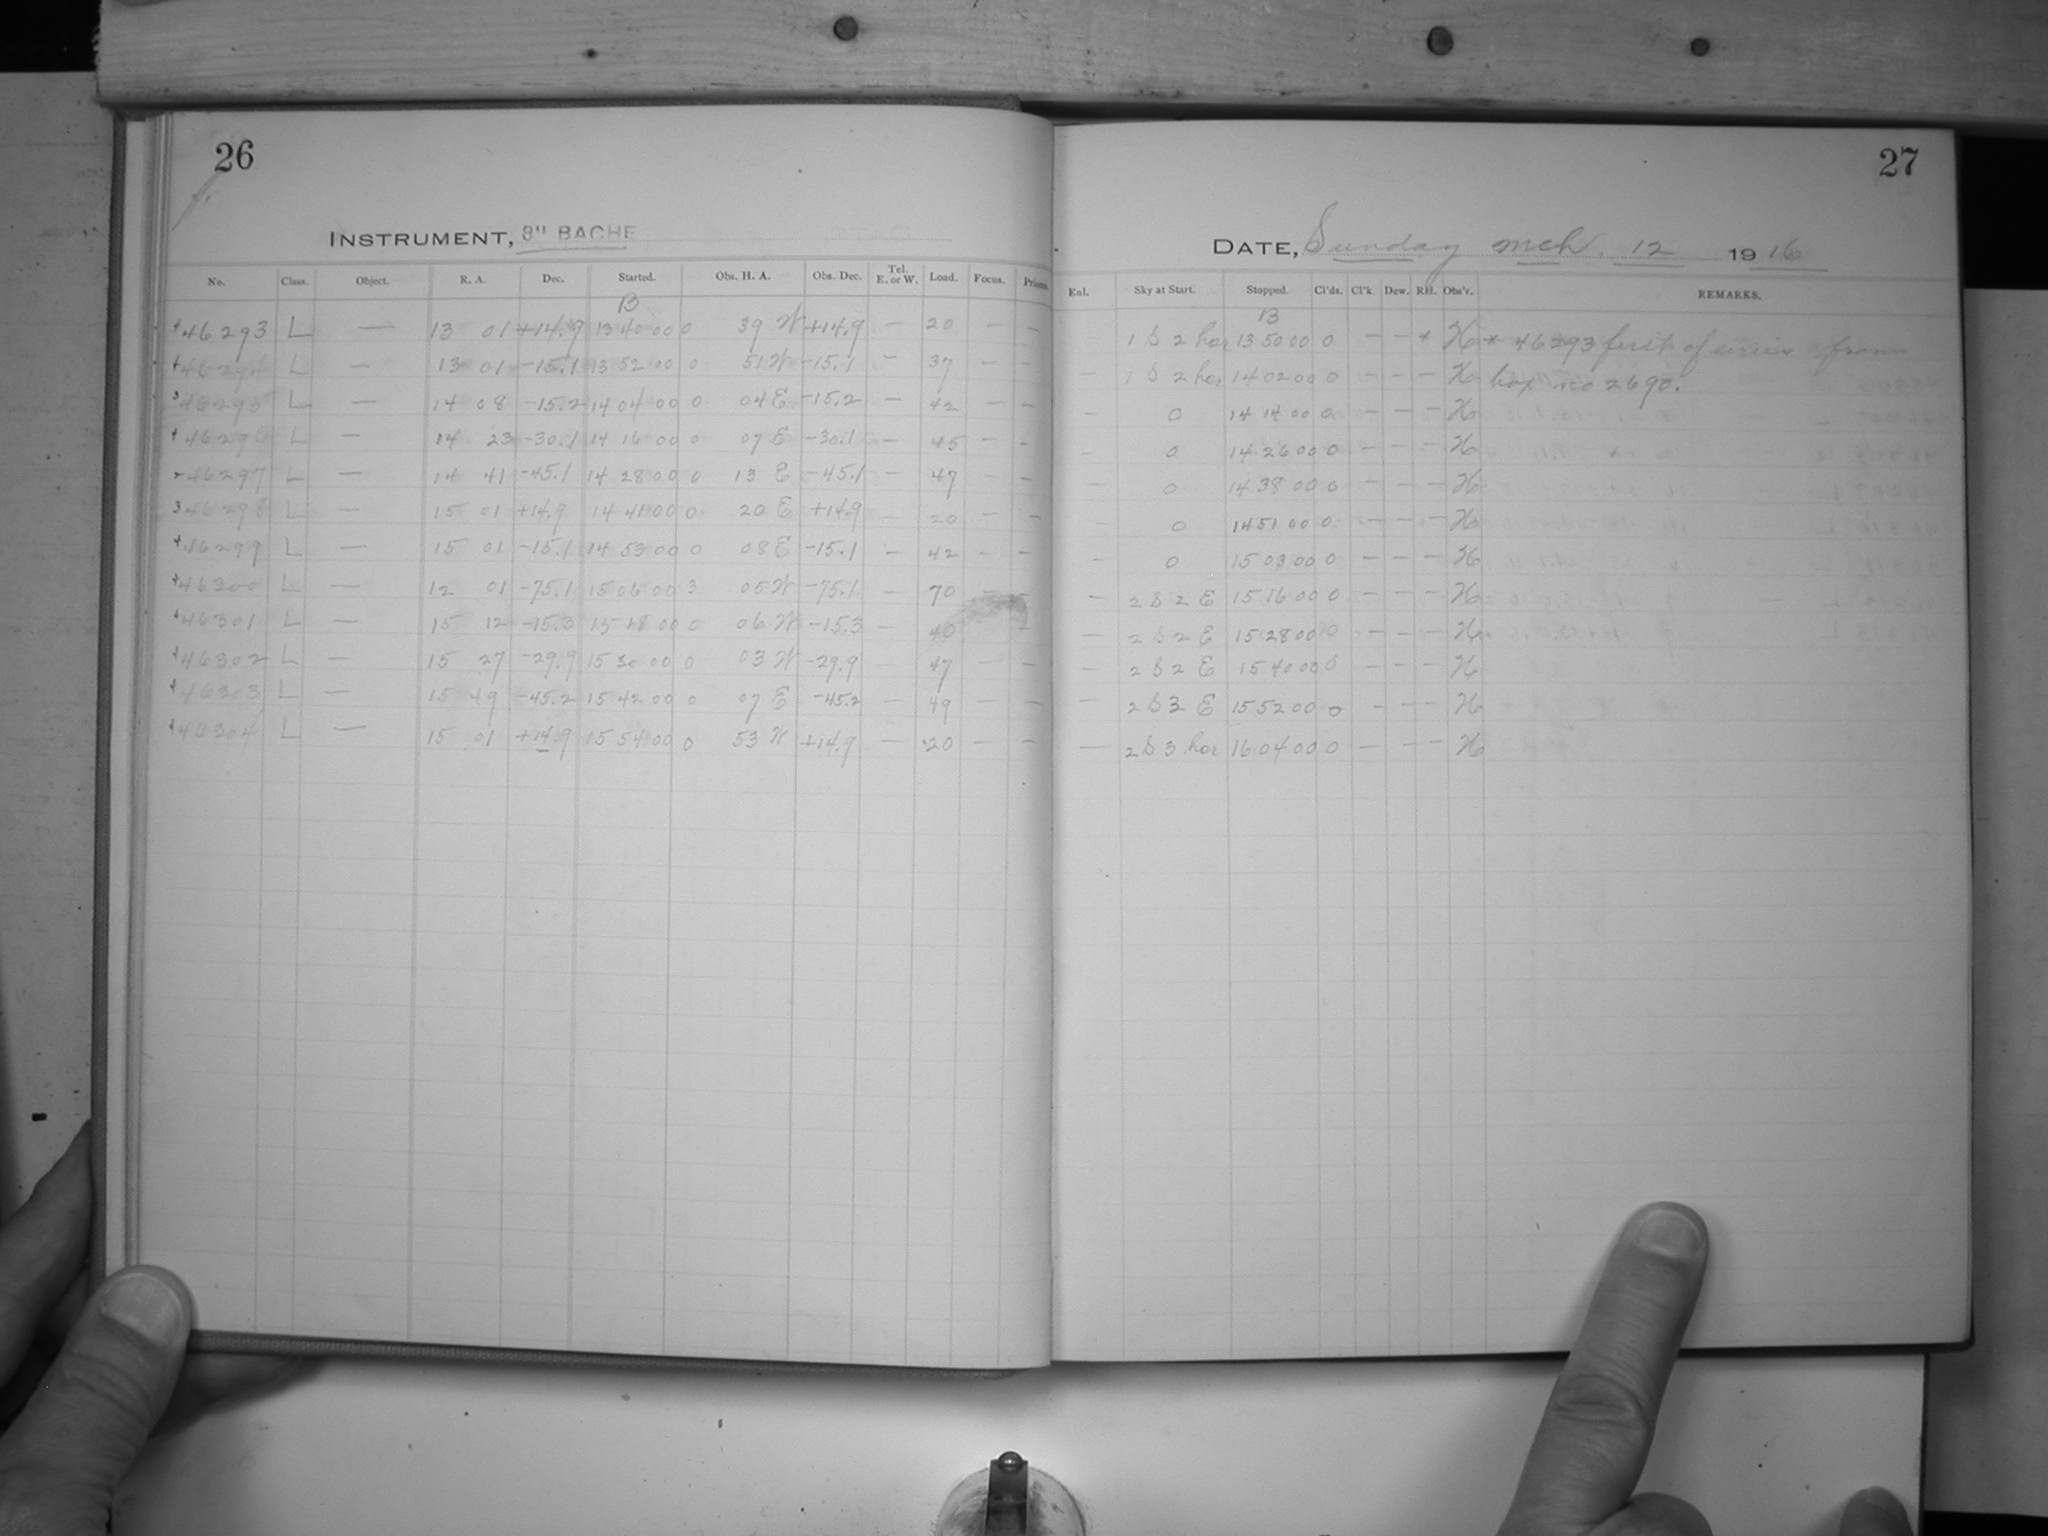 26
INSTRUMENT, 8" BACHE
No. Class. Object. R. A. Dec. Started. Obs. H. A. Obs. Dec. Tel. E. or W. Load. Focus. Prisms.
B
46293 L — 13 01 +14.9 13 40 00 0 39 W +14.9 — 20 — —
46294 L — 13 01 -15.1 13 52 00 0 51 W -15.1 — 37 — —
46295 L — 14 08 -15.2 14 04 00 0 04 E -15.2 — 42 — —
46296 L — 14 23 -30.1 14 16 00 0 07 E -30.1 — 45 — —
46297 L — 14 41 -45.1 14 28 00 0 13 E -45.1 — 47 — —
46298 L — 15 01 +14.9 14 41 00 0 20 E +14.9 — 20 — —
46299 L — 15 01 -15.1 14 53 00 0 08 E -15.1 — 42 — —
46300 L — 12 01 -75.1 15 06 00 3 05 W -75.1 — 70 — —
46301 L — 15 12 -15.3 15 18 00 0 06 W -15.3 — 40 —
46302 L — 15 27 -29.9 15 30 00 0 03 W -29.9 — 47 — —
46303 L — 15 49 -45.2 15 42 00 0 07 E -45.2 — 49 — —
46304 L — 15 01 +14.9 15 54 00 0 53 W +14.9 — 20 — —
27
DATE, Sunday mch. 12 1916
Enl. Sky at Start. Stopped. Cl'ds. Cl'k. Dew. Rel. Obs'r. REMARKS.
B
— 1 S 2 hor 13 50 00 0 — — * H * 46293 first of series from
— 1 S 2 hor 14 02 00 0 — — — H box no 2690.
— 0 14 14 00 0 — — — H
— 0 14 26 00 0 — — — H
— 0 14 38 00 0 — — — H
— 0 14 51 00 0 — — — H
— 0 15 03 00 0 — — — H
— 2 S 2 E 15 16 00 0 — — — H
— 2 S 2 E 15 28 00 0 — — — H
— 2 S 2 E 15 40 00 0 — — — H
— 2 S 3 E 15 52 00 0 — — — H
— 2 S 3 hor 16 04 00 0 — — — H